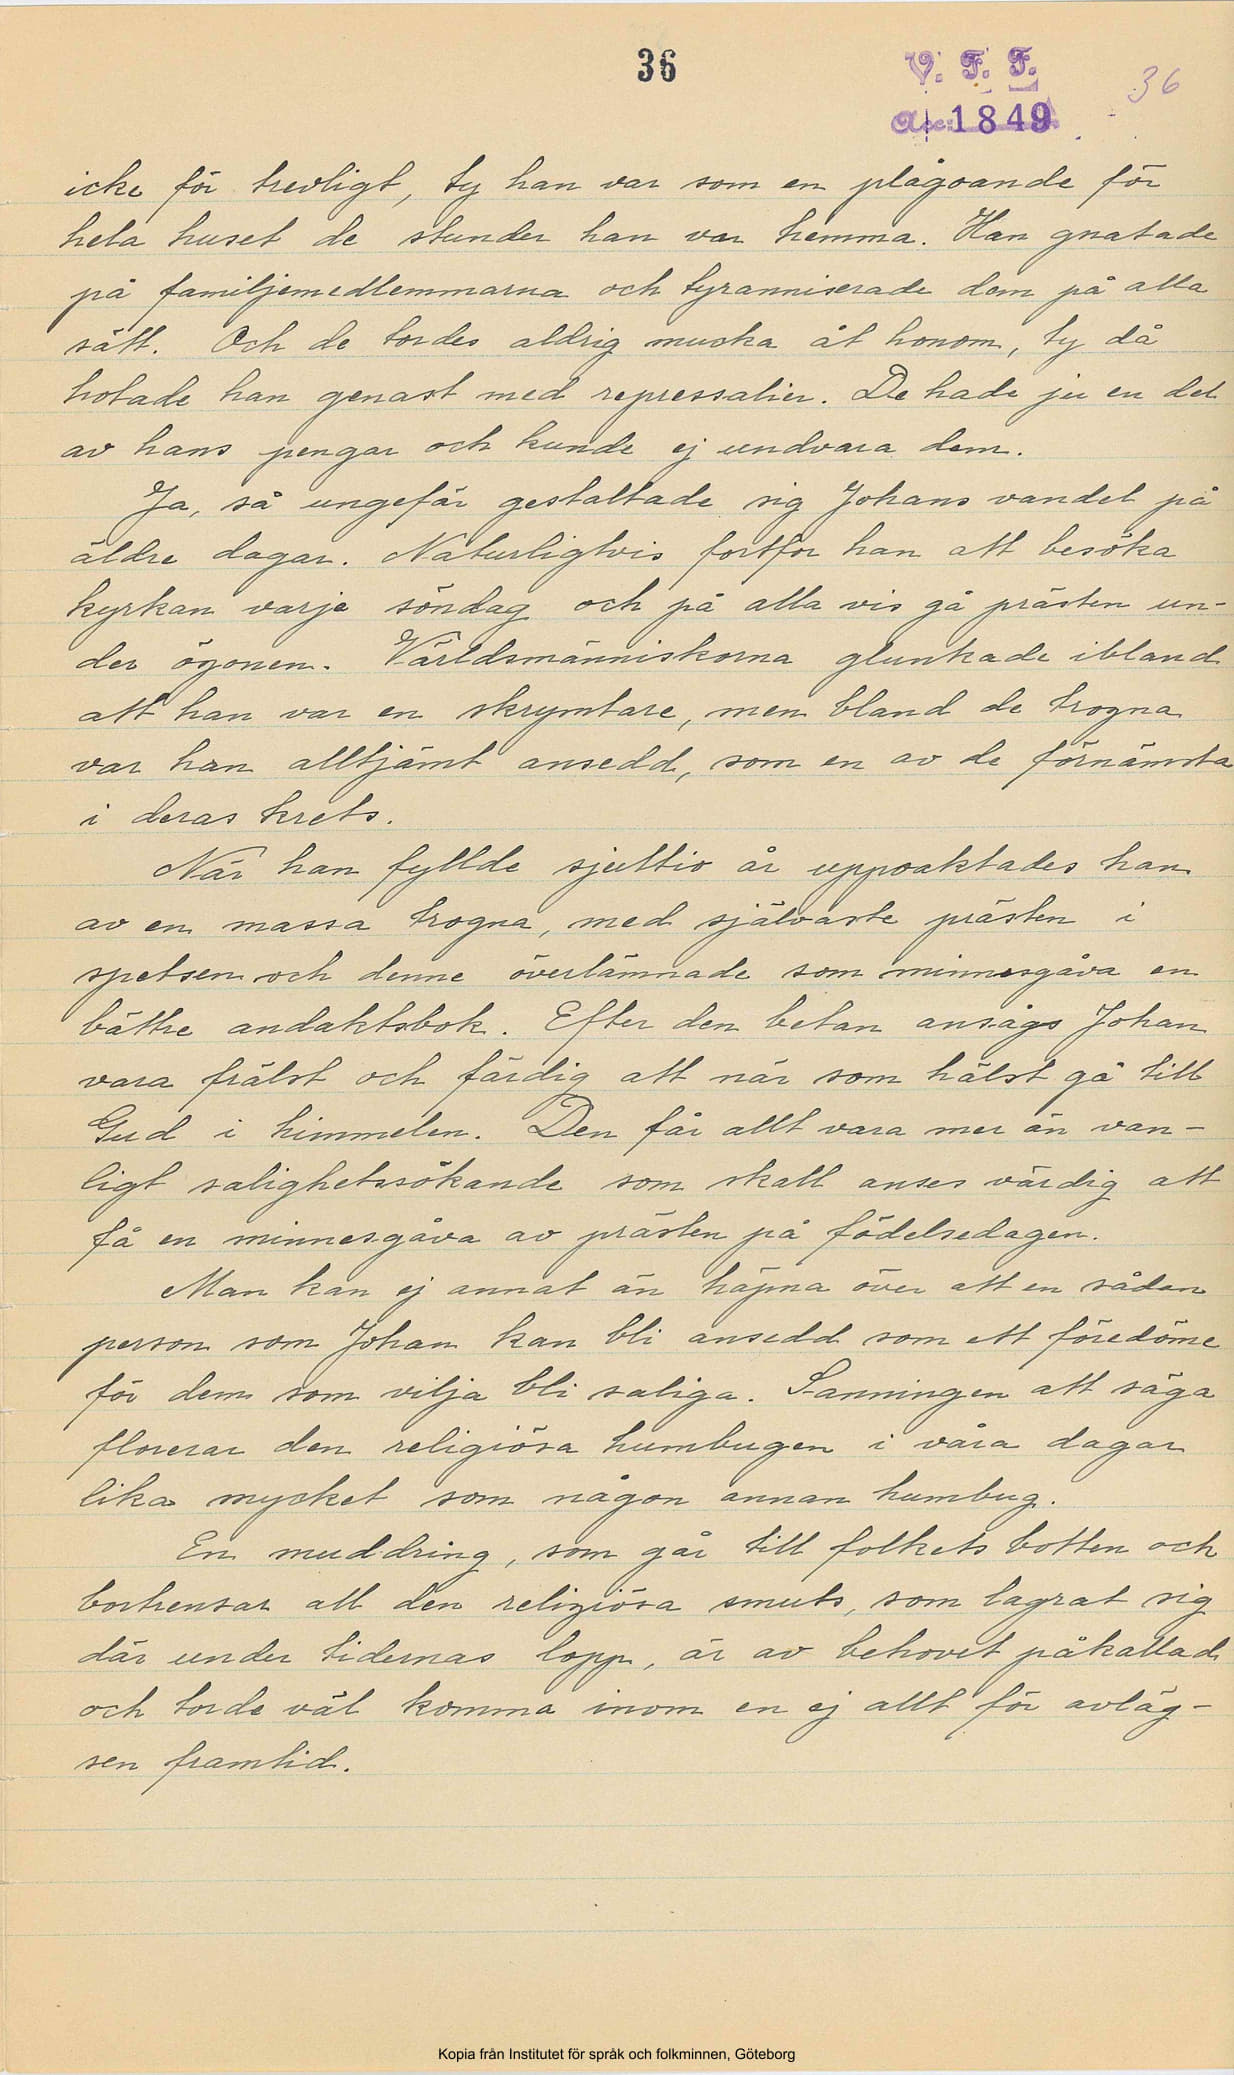 36
V. F. F.
Acc: 1849
36
icke för trevligt, ty han var som en plågoande för
hela huset de stunder han var hemma. Han gnatade
på familjemedlemmarna och tyranniserade dem på alla
sätt. Och de tordes aldrig mucka åt honom, ty då
hotade han genast med repressalier. De hade ju en del
av hans pengar och kunde ej undvara dem.
Ja, så ungefär gestaltade sig Johans vandel på
äldre dagar. Naturligtvis fortfor han att besöka
kyrkan varje söndag och på alla vis gå prästen un-
der ögonen. Världsmänniskorna glunkade ibland
att han var en skrymtare, men bland de trogna
var han alltjämt ansedd, som en av de förnämsta
i deras krets.
När han fyllde sjuttio år uppvaktades han
av en massa trogna, med självaste prästen i
spetsen och denne överlämnade som minnesgåva en
bättre andaktsbok. Efter den betan ansågs Johan
vara frälst och färdig att när som hälst gå till
Gud i himmelen. Den får allt vara mer än van-
ligt salighetssökande som skall anses värdig att
få en minnesgåva av prästen på födelsedagen.
Man kan ej annat än häpna över att en sådan
person som Johan kan bli ansedd som ett föredöme
för dem som vilja bli saliga. Sanningen att säga
florerar den religiösa humbugen i våra dagar
lika mycket som någon annan humbug.
En muddring, som går till folkets botten och
bortrensar all den religiösa smuts, som lagrat sig
där under tidernas lopp, är av behovet påkallad
och torde väl komma inom en ej allt för avläg-
sen framtid.
Kopia från Institutet för språk och folkminnen, Göteborg